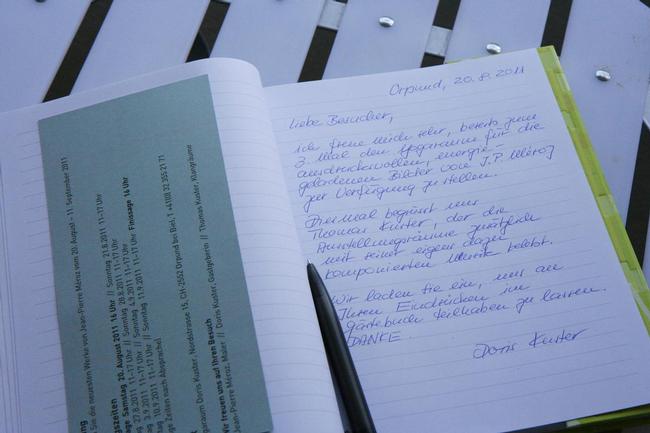 Sie die neuesten Werke von Jean-Pierre Méroz vom 20. August – 11. September 2011
Samstag 20. August 2011 16 Uhr // Sonntag 21.8.2011 11–17 Uhr
27.8.2011 11–17 Uhr // Sonntag 28.8.2011 11–17 Uhr
3.9.2011 11–17 Uhr // Sonntag 4.9.2011 11–17 Uhr
10.9.2011 11–17 Uhr // Sonntag 11.9.2011 11–17 Uhr Finissage 16 Uhr
Zeiten nach Absprache!
Doris Kuster, Nordstrasse 15, CH-2552 Orpund bei Biel, T +41(0) 32 355 21 71
freuen uns auf Ihren Besuch
Jean-Pierre Méroz, Maler // Doris Kuster, Gastgeberin // Thomas Kuster, Klangräume
Orpund, 20.8.2011
Liebe Besucher,
ich freue mich sehr, bereits zum
3. Mal den Yogaraum für die
ausdrucksvollen, energie-
geladenen Bilder von J.P. Méroz
zur Verfügung zu stellen.
Diesmal begrüsst uns
Thomas Kuster, der die
Ausstellungsräume zusätzlich
mit seiner eigens dazu
komponierten Musik belebt.
Wir laden Sie ein, uns an
Ihren Eindrücken im
Gästebuch teilhaben zu lassen.
DANKE.
Doris Kuster